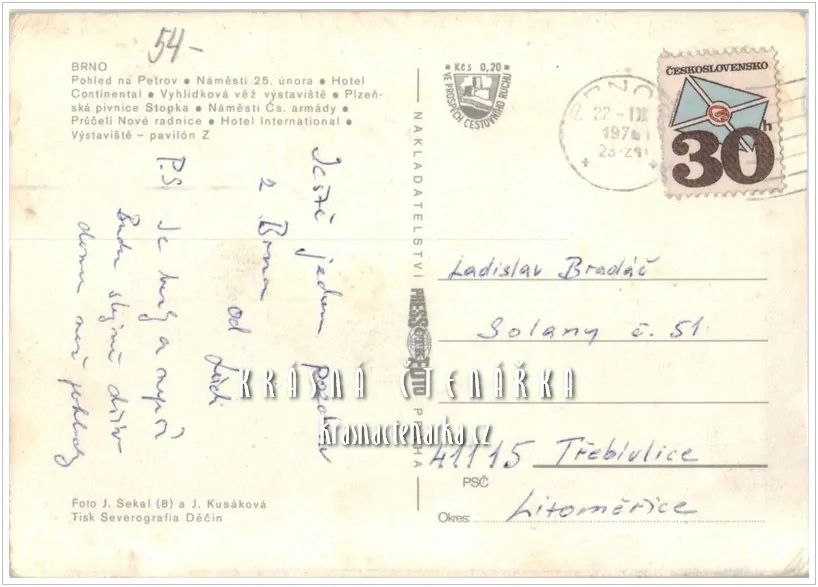 54-
BRNO
Pohled na Petrov ● Náměstí 25. února ● Hotel
Continental ● Vyhlídková věž výstaviště ● Plzeň-
ská pivnice Stopka ● Náměstí Čs. armády ●
Průčelí Nové radnice ● Hotel International ●
Výstaviště – pavilón Z
Ještě jeden pozdrav
z Brna
od
P.S. Je
Budu stejně dřív
domu než pohledy
Foto J. Sekal (8) a J. Kusáková
Tisk Severografia Děčín
NAKLADATELSTVÍ PRESSFOTO PRAHA
Kčs 0,20
VE PROSPĚCH CESTOVNÍHO RUCHU
22.-IX
23-24
ČESKOSLOVENSKO
30h
Ladislav Bradáč
Solany č. 51
41115 Třebívlice
PSČ
Okres: Litoměřice
KRÁSNÁ ČTENÁŘKA
krasnactenarka.cz